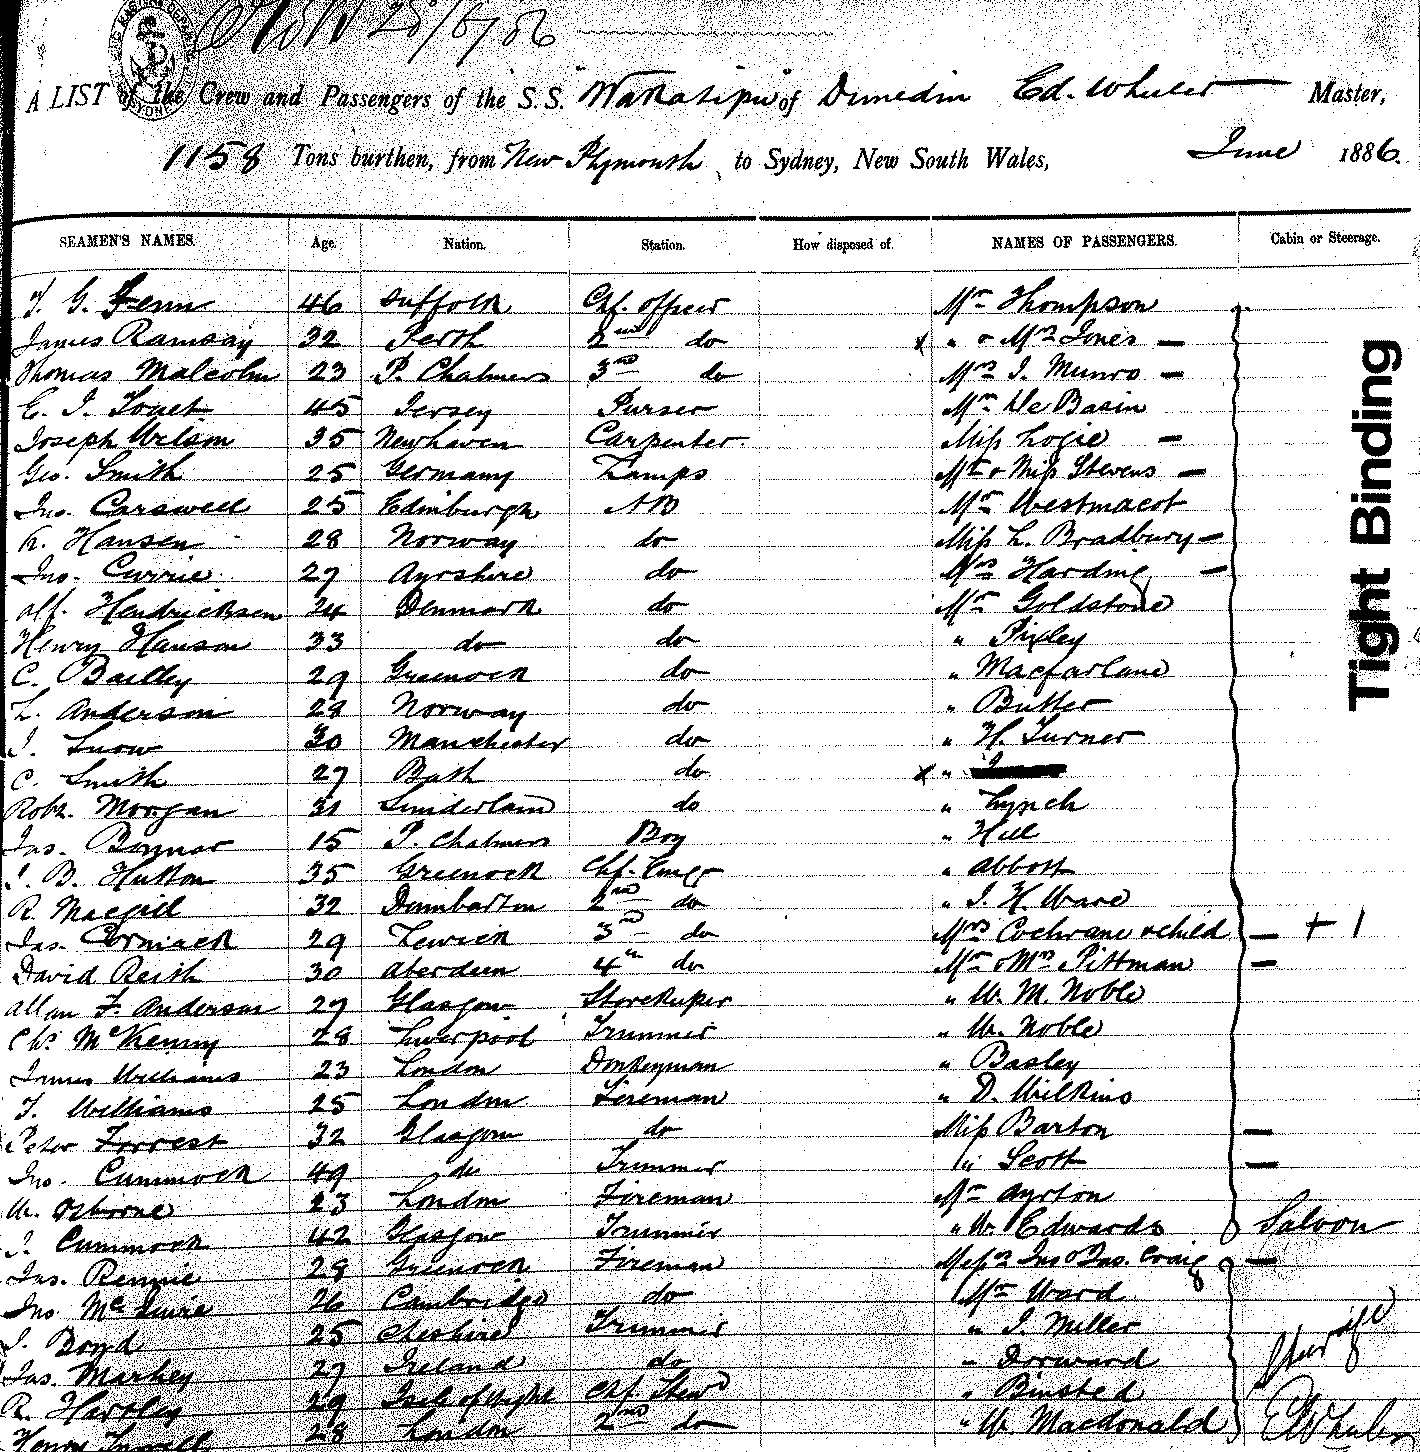 28/6/86
A LIST of the Crew and Passengers of the S.S. "Wakatipu" of Dunedin Ed. Wheeler Master,
1158 Tons burthen, from New Plymouth, to Sydney, New South Wales, June 1886.
SEAMEN'S NAMES. Age. Nation. Station. How disposed of. NAMES OF PASSENGERS. Cabin or Steerage.
G. Fenn 46 Suffolk Chf. officer Mr Thompson
James Ramsay 32 Perth 2nd do x " & Mrs Jones —
Thomas Malcolm 23 P. Chalmers 3rd do Mrs J. Munro —
45 Jersey Purser Mr De Basin
Joseph Wilson 35 Newhaven Carpenter. Miss Logie —
Geo. Smith 25 Germany Lamps Mr & Miss Stevens —
Jno. Carswell 25 Edinburgh AB Mr Westmacot
K. Hansen 28 Norway do Miss L. Bradbury —
Jno. Currie 27 Ayrshire do Mrs Harding —
Alf. Hendricksen 24 Denmark do Mr Goldstone
Henry Hanson 33 do do " Pixley
C. Bailley 29 Greenock do " Macfarlane
L. Anderson 28 Norway do " Butter
J. Snow 30 Manchester do " H. Turner
C. Smith 27 Bath do x "
Robt. Morgan 31 Sunderland do " Lynch
Jas. 15 P. Chalmers Boy " Hill
J. B. Hutton 35 Greenock Chf. Engr " Abbott
R. Macgill 32 Dumbarton 2nd do " J. H. Ware
Jas. Cormack 29 Lerwick 3rd do Mrs Cochrane & child — + 1
David Reith 30 Aberdeen 4th do Mr & Mrs Pittman —
Allan F. Anderson 27 Glasgow Storekeeper " W. M. Noble
Chs McKenny 28 Liverpool Trimmer " W. Noble
James Williams 23 London Donkeyman " Basley
T. Williams 25 London Fireman " D. Wilkins
Peter Forrest 32 Glasgow do Miss Barton —
Jno. Cummock 49 do Trimmer " Scott —
W. Osborne 23 London Fireman Mr Ayrton
J. Cummock 42 Glasgow Trimmer " W. Edwards Saloon
Jas. Rennie 28 Greenock Fireman Messrs Jno & Jas. Craig —
Jno. 26 Cambridge do Mr Ward
J. Boyd 25 Cheshire Trimmer " J. Miller
Jas. Markey 27 Ireland do " Dorward Steerage
R. Hartley 29 Isle of Wight Chf. Stewd " Binsted
Henry 28 London 2nd do " W. Macdonald E Wheeler
Tight Binding